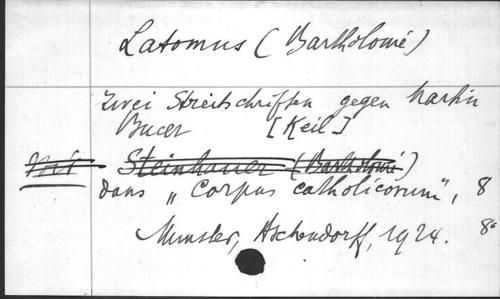 Latomus (Bartholomé)
Zwei Streitschriften gegen Martin
Bucer [Keil]
Steinhauer (Bartholomé)
dans „Corpus catholicorum", 8
Munster, Aschendorff, 1924. 8°